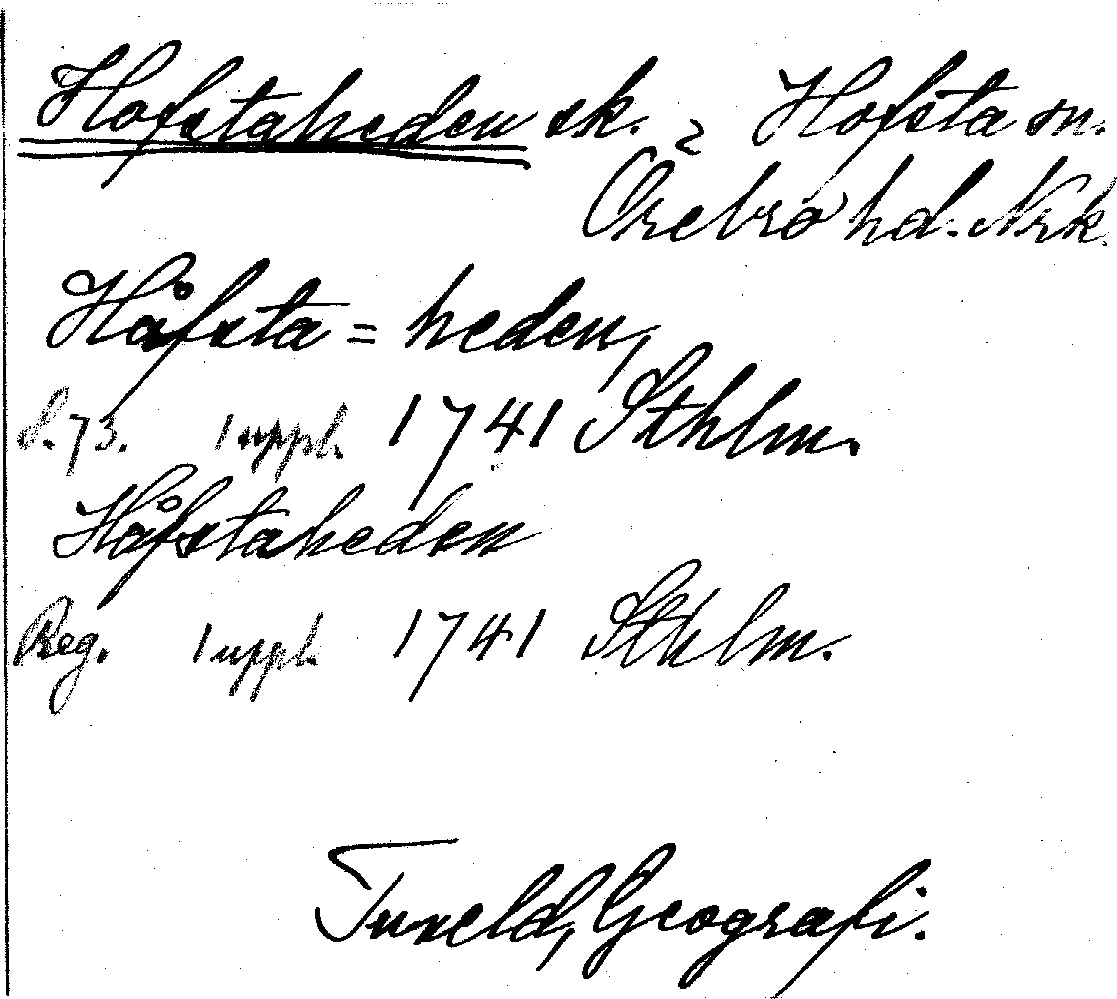 Hofstaheden sk. ~ Hofsta sn.
Örebro hd. Nrk.
Håfsta = heden,
S. 73. 1 uppl. 1741 Sthlm.
Håfstaheden
Reg. 1 uppl. 1741 Sthlm.
Tuneld, Geografi.